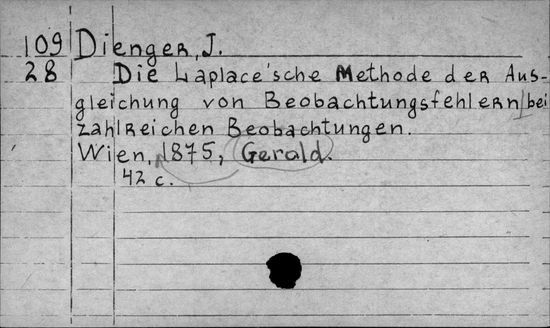 109 Dienger, J.
28 Die Laplace'sche Methode der Aus-
gleichung von Beobachtungsfehlern bei
zahlreichen Beobachtungen.
Wien, 1875, Gerold.
42 c.